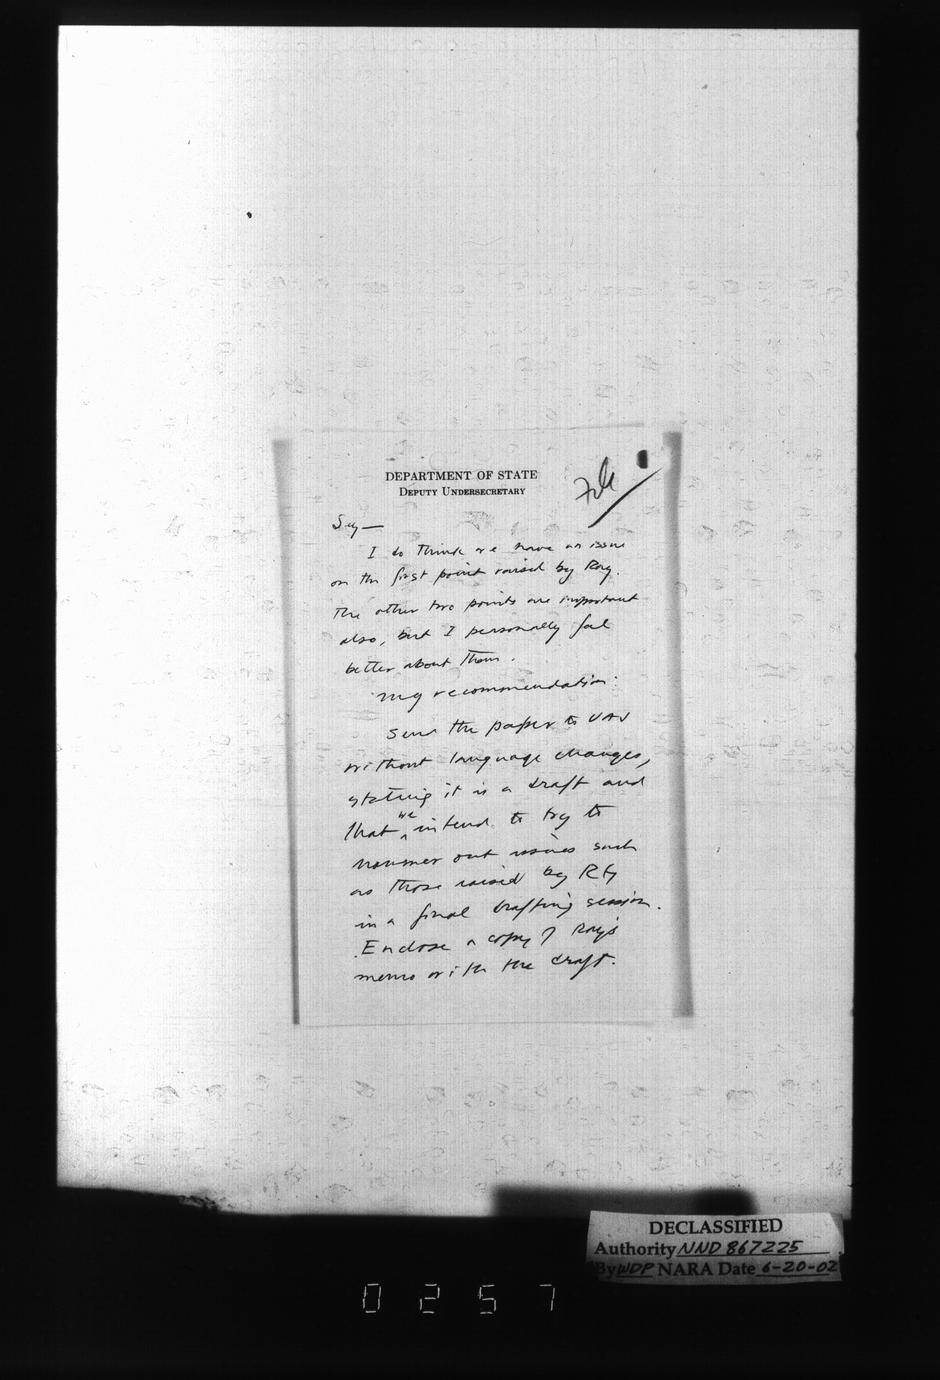 DEPARTMENT OF STATE
DEPUTY UNDERSECRETARY
File
Sey—
I do think we have an issue
on the first point raised by Ray.
The other two points are important
also, but I personally feel
better about them.
My recommendation:
Send the paper to UAJ
without language changes,
stating it is a draft and
that we intend to try to
hammer out issues such
as those raised by RH
in a final drafting session.
Enclose a copy of Ray's
memo with the draft.
DECLASSIFIED
Authority NND 867225
By WDP NARA Date 6-20-02
0257